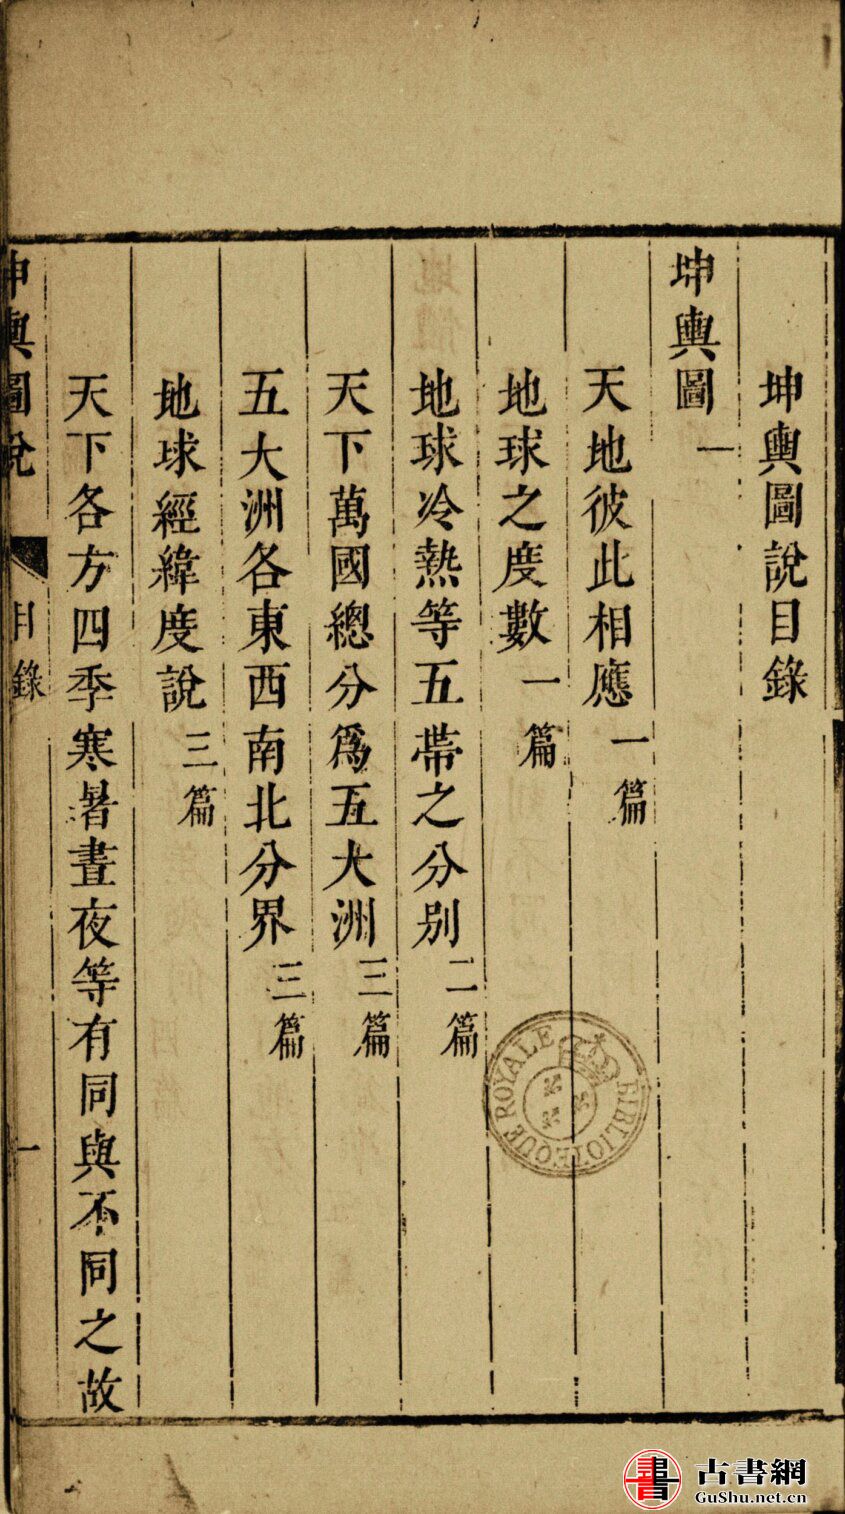 坤輿圖說目錄
坤輿圖一
天地彼此相應一篇
地球之度數一篇
地球冷熱等五帶之分別二篇
天下萬國總分爲五大洲三篇
五大洲各東西南北分界三篇
地球經緯度說三篇
天下各方四季寒暑晝夜等有同與不同之故
坤輿圖說
目錄
一
BIBLIOTEQUE ROYALE
古書網
GuShu.net.cn